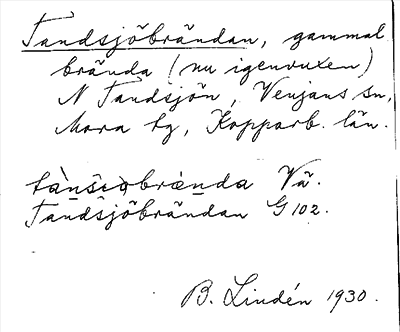 Tandsjöbrändan, gammal
brända (nu igenvuxen)
N Tandsjön, Venjans sn,
Mora tg, Kopparb. län.
Vä.
Tandsjöbrändan G 102.
B. Lindén 1930.